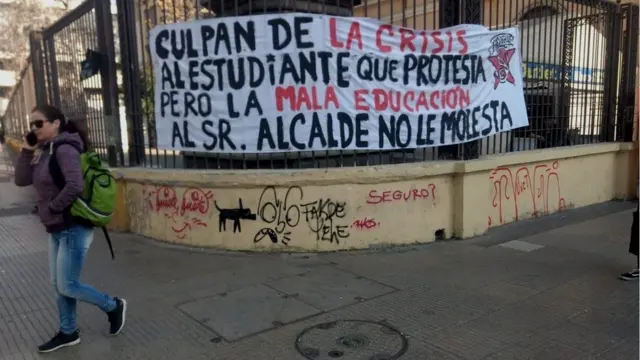 CULPAN DE LA CRISIS
AL ESTUDIANTE QUE PROTESTA
PERO LA MALA EDUCACIÓN
AL SR. ALCALDE NO LE MOLESTA
SEGURO?